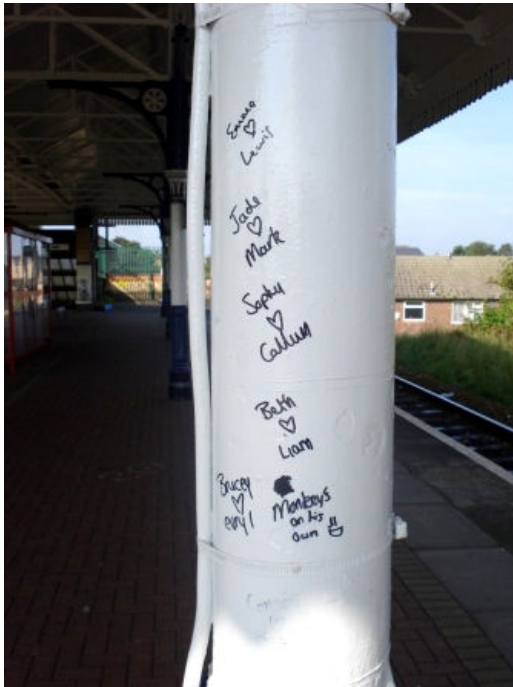 Emma
♡
Lewis
Jade
♡
Mark
Sophy
♡
Callum
Beth
♡
Liam
Brucey
♡
Monkeys
on his
own